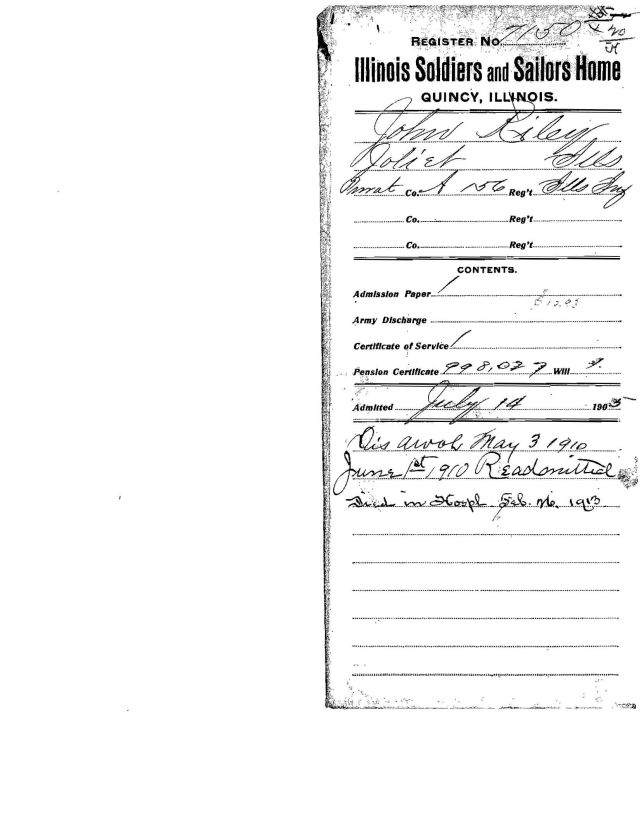 REGISTER No. 7150
20
Illinois Soldiers and Sailors Home
QUINCY, ILLINOIS.
John Riley
Joliet Ills
Privat Co. A 156 Reg't Ills Inf
Co. Reg't
Co. Reg't
CONTENTS.
Admission Paper 1
$12.93
Army Discharge
Certificate of Service 1
Pension Certificate 998,027 Will
Admitted July 14 1905
Dis awol May 3 1910
June 1st 1910 Readmitted
Died in Hospl Feb. 1913